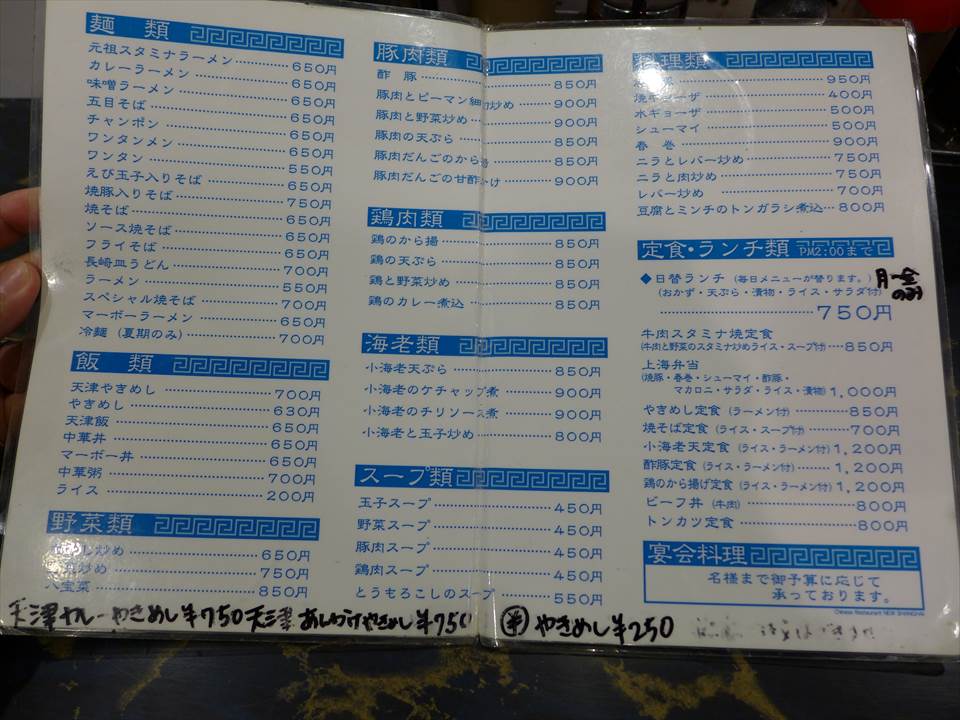 麺類
元祖スタミナラーメン 650円
カレーラーメン 650円
味噌ラーメン 650円
五目そば 650円
チャンポン 650円
ワンタンメン 650円
ワンタン 550円
えび玉子入りそば 650円
焼豚入りそば 750円
焼そば 650円
ソース焼そば 650円
フライそば 650円
長崎皿うどん 700円
ラーメン 550円
スペシャル焼そば 700円
マーボーラーメン 650円
冷麺（夏期のみ） 700円
飯類
天津やきめし 700円
やきめし 630円
天津飯 650円
中華丼 650円
マーボー丼 650円
中華粥 700円
ライス 200円
野菜類
し炒め 650円
炒め 750円
八宝菜 850円
豚肉類
酢豚 850円
豚肉とピーマン細切炒め 900円
豚肉と野菜炒め 900円
豚肉の天ぷら 850円
豚肉だんごのから揚 850円
豚肉だんごの甘酢かけ 900円
鶏肉類
鶏のから揚 850円
鶏の天ぷら 850円
鶏と野菜炒め 850円
鶏のカレー煮込 850円
海老類
小海老天ぷら 850円
小海老のケチャップ煮 900円
小海老のチリソース煮 900円
小海老と玉子炒め 800円
スープ類
玉子スープ 450円
野菜スープ 450円
豚肉スープ 450円
鶏肉スープ 450円
とうもろこしのスープ 550円
料理類
950円
焼ギョーザ 400円
水ギョーザ 500円
シューマイ 500円
春巻 900円
ニラとレバー炒め 750円
ニラと肉炒め 750円
レバー炒め 700円
豆腐とミンチのトンガラシ煮込 800円
定食・ランチ類 PM2:00まで
◆日替ランチ（毎日メニューが替ります。） 月〜金のみ
（おかず・天ぷら・漬物・ライス・サラダ付）
750円
牛肉スタミナ焼定食
（牛肉と野菜のスタミナ炒めライス・スープ付） 850円
上海弁当
（焼豚・春巻・シューマイ・酢豚・
マカロニ・サラダ・ライス・漬物） 1,000円
やきめし定食（ラーメン付） 850円
焼そば定食（ライス・スープ付） 700円
小海老天定食（ライス・ラーメン付） 1,200円
酢豚定食（ライス・ラーメン付） 1,200円
鶏のから揚げ定食（ライス・ラーメン付） 1,200円
ビーフ丼（牛肉） 800円
トンカツ定食 800円
宴会料理
名様まで御予算に応じて
承っております。
Chinese Restaurant NEW SHANGHAI
天津カレーやきめし¥750 天津あんかけやきめし¥750 半やきめし¥250